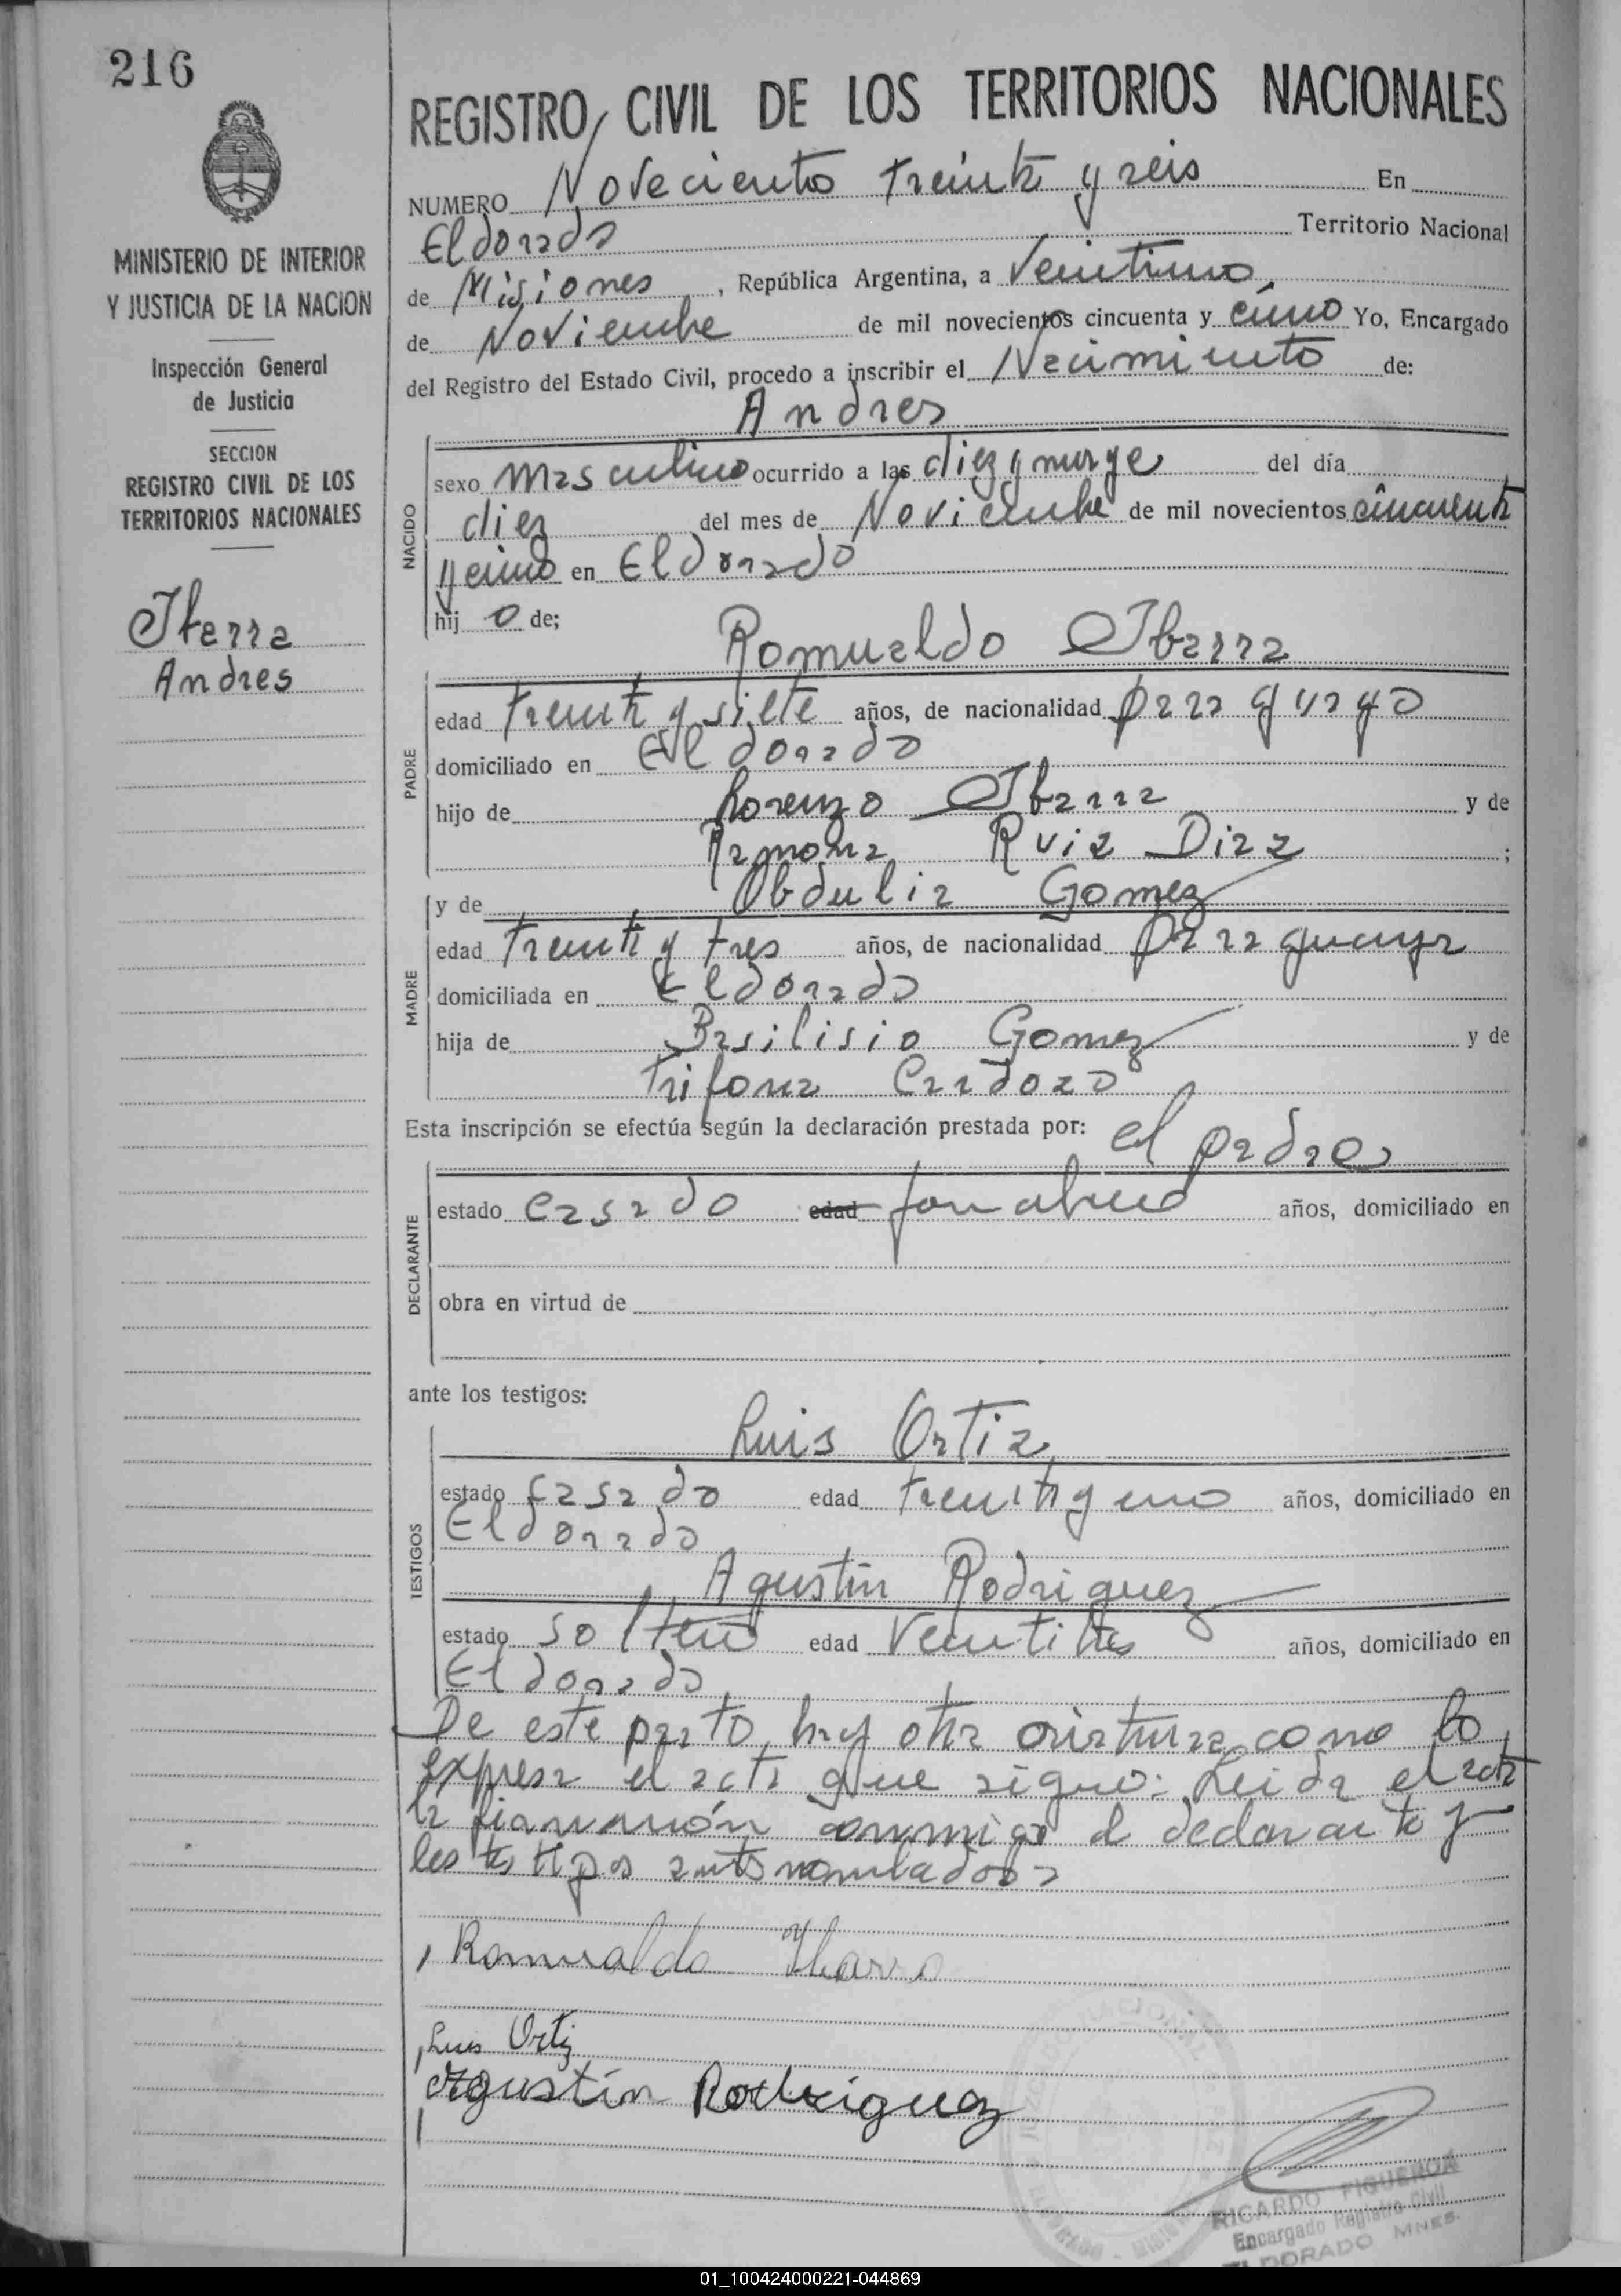 216
MINISTERIO DE INTERIOR
Y JUSTICIA DE LA NACION
Inspección General
de Justicia
SECCION
REGISTRO CIVIL DE LOS
TERRITORIOS NACIONALES
Ibarra
Andres
REGISTRO CIVIL DE LOS TERRITORIOS NACIONALES
NUMERO Noveciento treinta y seis En
Eldorado Territorio Nacional
de Misiones, República Argentina, a Veintiuno
de Noviembre de mil novecientos cincuenta y cinco Yo, Encargado
del Registro del Estado Civil, procedo a inscribir el Nacimiento de:
Andres
NACIDO
sexo masculino ocurrido a las diez y nueve del día
diez del mes de Noviembre de mil novecientos cincuenta
y cinco en Eldorado
hij o de;
Romualdo Ibarra
PADRE
edad treinta y siete años, de nacionalidad paraguayo
domiciliado en Eldorado
hijo de Lorenzo Ibarra y de
Ramona Ruiz Diaz ;
y de Obdulia Gomez
MADRE
edad treinta y tres años, de nacionalidad paraguaya
domiciliada en Eldorado
hija de Basilisio Gomez y de
Trifona Cardozo
Esta inscripción se efectúa según la declaración prestada por: el padre
DECLARANTE
estado casado edad años, domiciliado en
obra en virtud de
ante los testigos:
Luis Ortiz
TESTIGOS
estado casado edad treinta y uno años, domiciliado en
Eldorado
Agustin Rodriguez
estado soltero edad Veintitres años, domiciliado en
Eldorado
De este parto hay otra criatura como lo
expresa el acta que sigue: Leida el acta
la firmaron conmigo el declarante y
los testigos antes nombrados
Romualdo Ibarra
Luis Ortiz
Agustin Rodriguez
RICARDO FIGUEROA
Encargado Registro Civil
ELDORADO MNES.
01_100424000221-044869